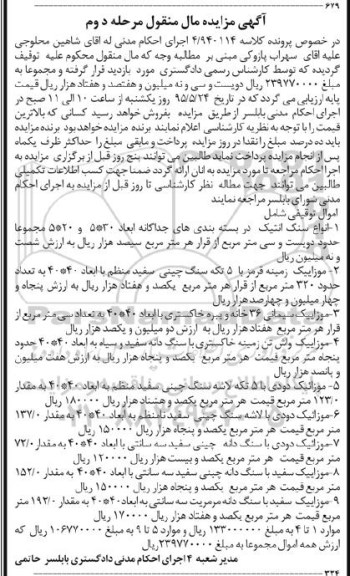 ۶۲۹
آگهی مزایده مال منقول مرحله دوم
در خصوص پرونده کلاسه ۴/۹۴۰۱۱۴ اجرای احکام مدنی له اقای شاهین محلوجی
علیه اقای سهراب پازوکی مبنی بر مطالبه وجه که مال منقول محکوم علیه توقیف
گردیده که توسط کارشناس رسمی دادگستری مورد بازدید قرار گرفته و مجموعا به
مبلغ ۲۳۹۷۷۰۰۰۰ ریال دویست و سی و نه میلیون و هفتصد و هفتاد هزار ریال قیمت
پایه ارزیابی می گردد که در تاریخ ۹۵/۵/۲۴ روز یکشنبه از ساعت ۱۰ الی ۱۱ صبح در
اجرای احکام مدنی بابلسر از طریق مزایده بفروش خواهد رسید کسانی که بالاترین
قیمت را با توجه به نظریه کارشناسی اعلام نمایند برنده مزایده خواهد بود برنده مزایده
باید ده درصد مبلغ را نقدا در روز مزایده پرداخت و مابقی مبلغ را حداکثر ظرف یکماه
پس از انجام مزایده پرداخت نماید طالبین می توانند پنج روز قبل از برگزاری مزایده به
اجرا احکام مراجعه تا مورد مزایده به انان ارائه گردد ضمنا جهت کسب اطلاعات تکمیلی
طالبین می توانند جهت مطاله نظر کارشناسی تا روز قبل از مزایده به اجرای احکام
مدنی شورای بابلسر مراجعه نمایند
اموال توقیفی شامل
۱-انواع سنگ انتیک در بسته بندی های جداگانه ابعاد ۳۰*۵ و ۲۰*۵ مجموعا
حدود دویست و سی متر مربع از قرار هر متر مربع سیصد هزار ریال به ارزش شصت
و نه میلیون ریال
۲- موزاییک زمینه قرمز با ۵ تکه سنگ چینی سفید منظم با ابعاد ۴۰*۴۰ به تعداد
حدود ۳۲۰ متر مربع از قرار هر متر مربع یکصد و هفتاد هزار ریال به ارزش پنجاه و
چهار میلیون و چهارصد هزار ریال
۳- موزاییک سیمانی ۳۶ خانه و غیره خاکستری با ابعاد ۴۰*۴۰ به تعداد سی متر مربع از
قرار هر متر مربع هفتاد هزار ریال به ارزش دو میلیون و یکصد هزار ریال
۴- موزاییک واش بتن زمینه خاکستری با سنگ دانه سفید و سیاه به ابعاد ۴۰*۴۰ حدود
پنجاه متر مربع قیمت هر متر مربع یکصد و پنجاه هزار ریال به ارزش هفت میلیون
و پانصد هزار ریال
۵- موزائیک دودی با ۵ تکه لاشه سنگ چینی سفید منظم به ابعاد ۴۰*۴۰ به مقدار
۱۲۳/۰ متر مربع قیمت هر متر مربع یکصد و هشتاد هزار ریال ۱۸۰۰۰۰ ریال
۶-موزائیک دودی با لاشه سنگ چینی سفید نامنظم به ابعاد ۴۰*۴۰ به مقدار ۱۳۷/۰
متر مربع قیمت هر متر مربع یکصد و پنجاه هزار ریال ۱۵۰۰۰۰ ریال
۷-موزائیک دودی با سنگ دانه چینی سفید سه سانتی با ابعاد ۴۰*۴۰ به مقدار ۷۲/۰
متر مربع قیمت هر متر مربع یکصد و بیست هزار ریال ۱۲۰۰۰۰ ریال
۸- موزاییک سفید با سنگ دانه چینی سفید سه سانتی با ابعاد ۴۰*۴۰ به مقدار ۱۵۲/۰
متر مربع قیمت هر متر مربع یکصد و پنجاه هزار ریال ۱۵۰۰۰۰ ریال
۹- موزاییک سفید با سنگ دانه مرمریت سه سانتی به ابعاد ۴۰*۴۰ به مقدار ۱۹۲/۰ متر
مربع قیمت هر متر مربع یکصد و هفتاد هزار ریال ۱۷۰۰۰۰ ریال
موارد ۱ تا ۴ به مبلغ ۱۳۳۰۰۰۰۰۰ ریال و موارد ۵ تا ۹ به مبلغ ۱۰۶۷۷۰۰۰۰ ریال که
ارزش همه اموال مجموعا به مبلغ ۲۳۹۷۷۰۰۰۰ ریال
مدیر شعبه ۴ اجرای احکام مدنی دادگستری بابلسر حاتمی
۳۲۴